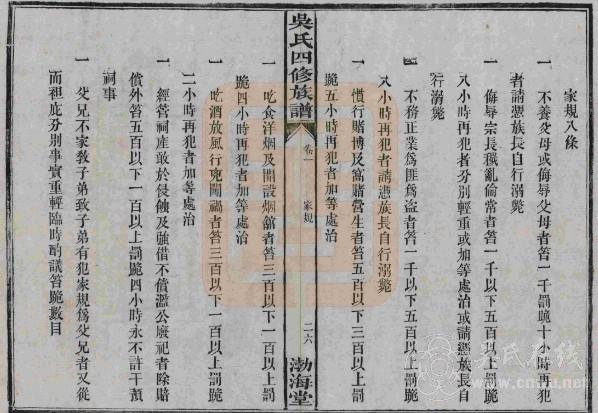 家規八條
一 不養父母或侮辱父母者笞一千罰跪十小時再犯
者請憑族長自行溺斃
一 侮辱宗長穢亂倫常者笞一千以下五百以上罰跪
八小時再犯者分別輕重或加等處治或請憑族長自
行溺斃
一 不務正業爲匪爲盜者笞一千以下五百以上罰跪
八小時再犯者請憑族長自行溺斃
一 慣行賭博及窩賭營生者笞五百以下三百以上罰
跪五小時再犯者加等處治
吳氏四修族譜
卷一
家規
二六
渤海堂
一 吃食洋烟及開設烟舘者笞三百以下一百以上罰
跪四小時再犯者加等處治
一 吃酒放風行兇闖禍者笞三百以下一百以上罰跪
二小時再犯者加等處治
一 經管祠產敢於侵蝕及強借不償濫公廢祀者除賠
償外笞五百以下一百以上罰跪四小時永不許干預
祠事
一 父兄不家教子弟致子弟有犯家規爲父兄者又從
而袒庇分別事實重輕臨時酌議笞跪數目
吴氏在线
www.cnwu.net